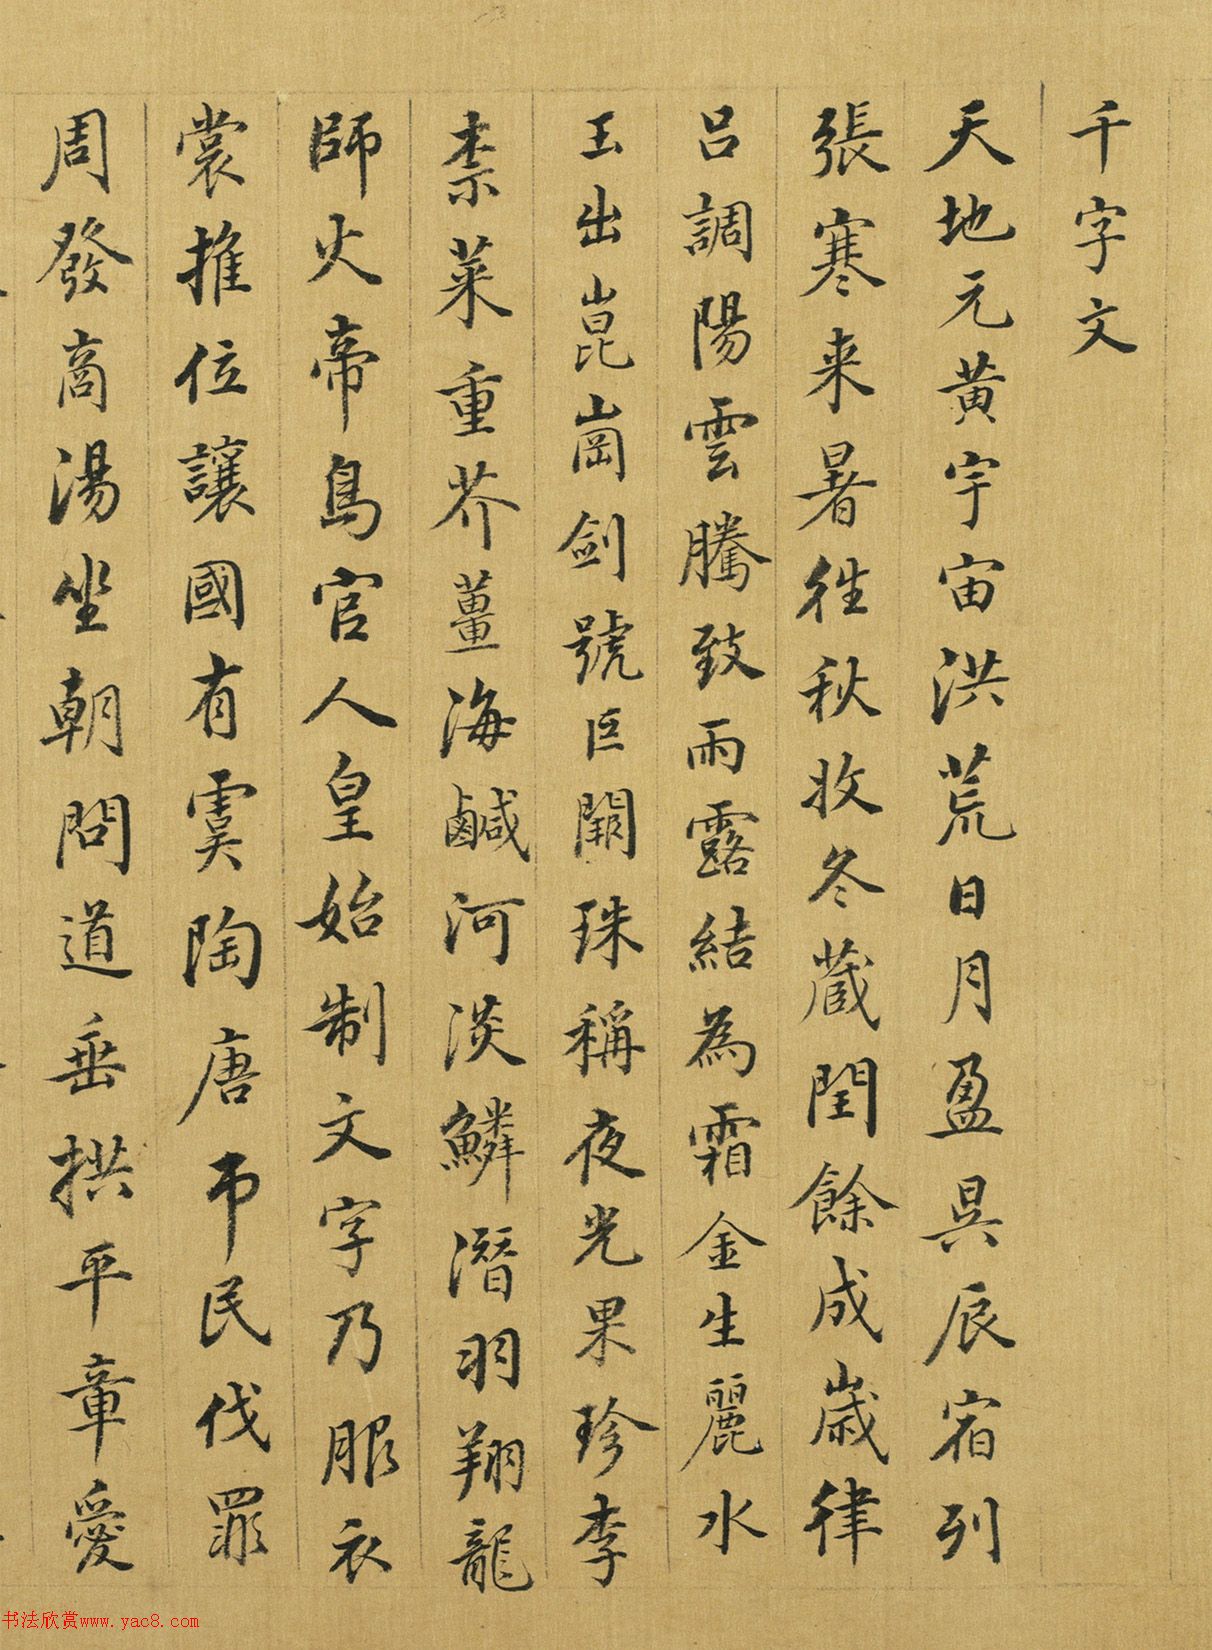 千字文
天地元黄宇宙洪荒日月盈昃辰宿列
張寒来暑往秋收冬蔵閏餘成歳律
吕調陽雲騰致雨露結為霜金生麗水
玉出崑崗剑號巨闕珠稱夜光果珍李
柰菜重芥薑海鹹河淡鱗潛羽翔龍
師火帝鳥官人皇始制文字乃服衣
裳推位讓國有虞陶唐弔民伐罪
周發商湯坐朝問道垂拱平章愛
书法欣赏www.yac8.com